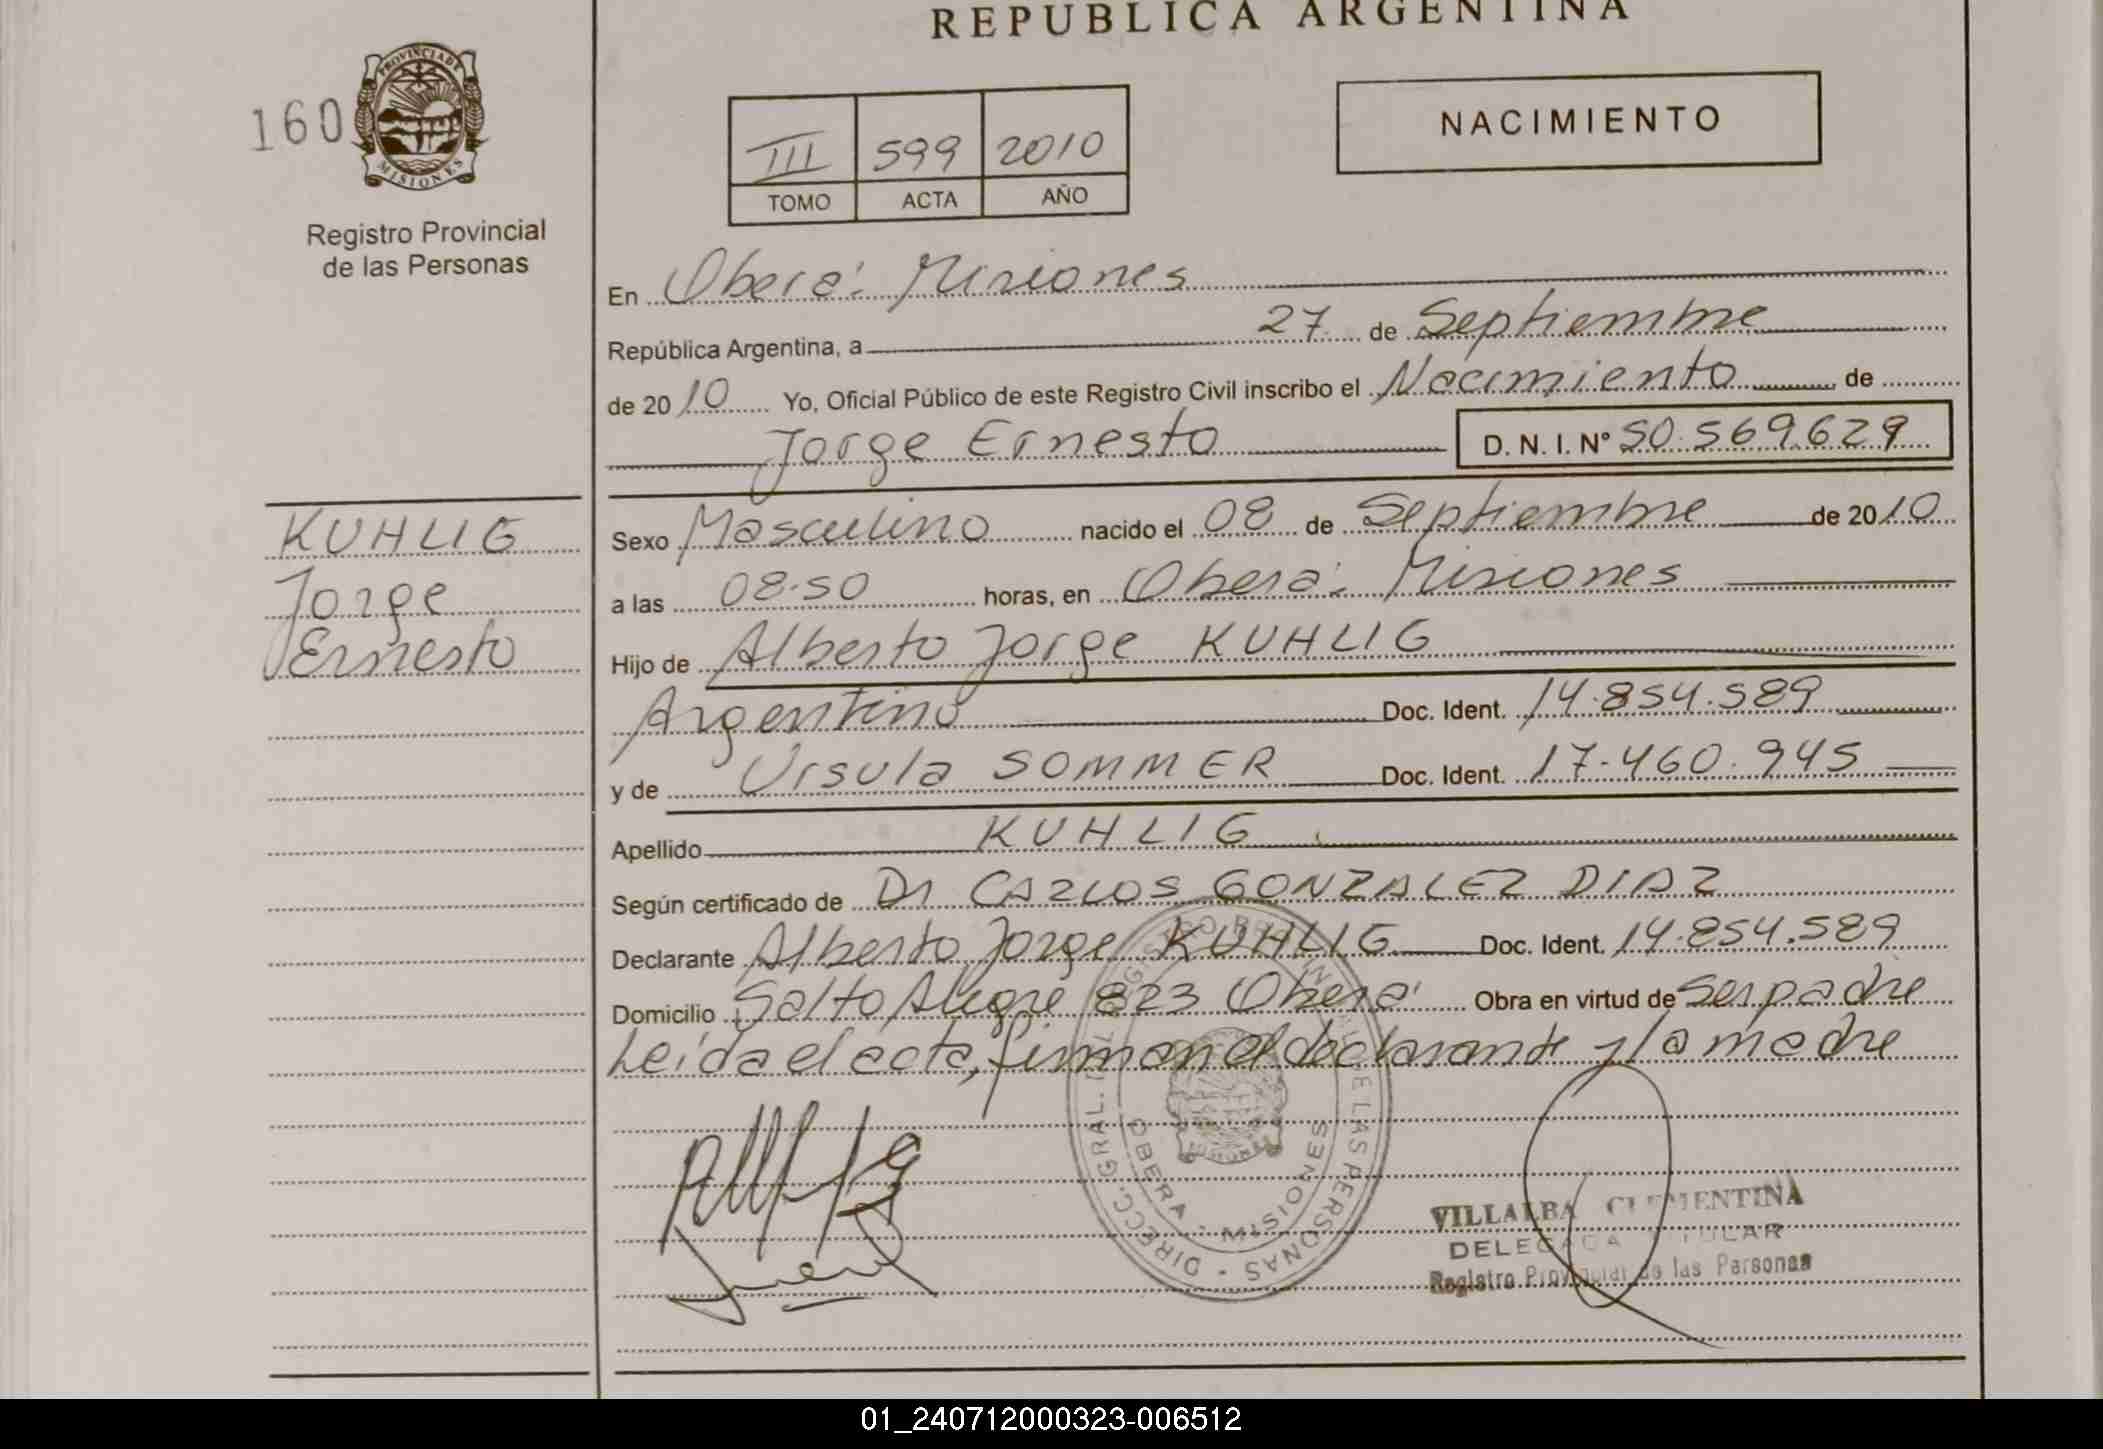 REPUBLICA ARGENTINA
160
PROVINCIA DE
MISIONES
Registro Provincial
de las Personas
III 599 2010
TOMO ACTA AÑO
NACIMIENTO
En Oberá: Misiones
República Argentina, a 27 de Septiembre
de 2010 Yo, Oficial Público de este Registro Civil inscribo el Nacimiento de
Jorge Ernesto D. N. I. N° 50.569.629
KUHLIG
Jorge
Ernesto
Sexo Masculino nacido el 08 de Septiembre de 2010
a las 08.50 horas, en Oberá: Misiones
Hijo de Alberto Jorge KUHLIG
Argentino Doc. Ident. 14.854.589
y de Ursula SOMMER Doc. Ident. 17.460.945
Apellido KUHLIG
Según certificado de Dr CARLOS GONZALEZ DIAZ
Declarante Alberto Jorge KUHLIG Doc. Ident. 14.854.589
Domicilio Salto Alegre 823 Oberá Obra en virtud de Ser padre
Leída el acta, firman el declarante y la madre
DIRECC. GRAL. DEL REGISTRO PROVINCIAL DE LAS PERSONAS
OBERA - MISIONES
VILLALBA CLEMENTINA
DELEGADA TITULAR
Registro Provincial de las Personas
01_240712000323-006512